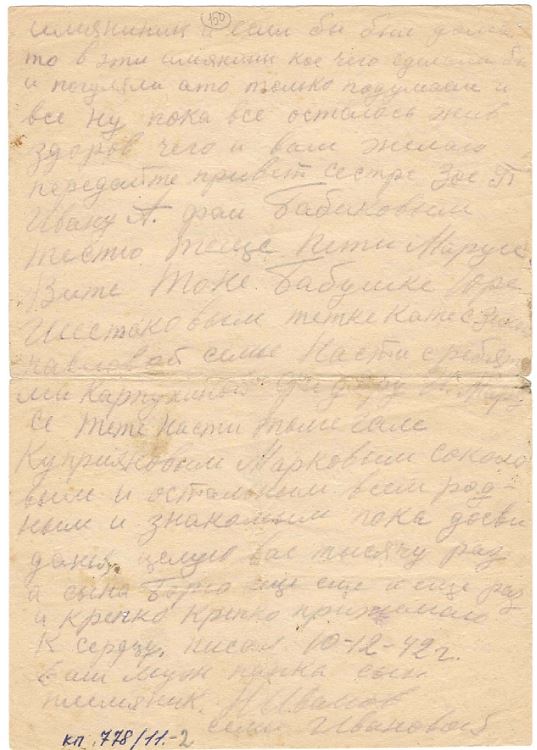 150
имянинник и если бы был дома
то в эти имянины кое чего сделали бы
и погуляли а то только подумаем и
все ну пока все осталось жив
здоров чего и вам желаю
передайте привет сестре Зое П
Ивану А. Фаи Бабиновым
тестю теще Пети Марусе
Вите Тоне. Бабушке
Шестаковым тетке Кате с
павловой семье Насти с ребятa
ми Карпухиным Федору И.
се тете Насти
Куприяновым Марковым соколо
вым и остальным всем род-
ным и знакомым пока досви
дания целую вас тысячу раз
а сына Борю еще еще и еще раз
и крепко крепко прижимаю
к сердцу. писал 10-12-42 г.
Ваш муж папка сын
племяник. Н Иванов
семьи Ивановой
кп. 778/11.-2